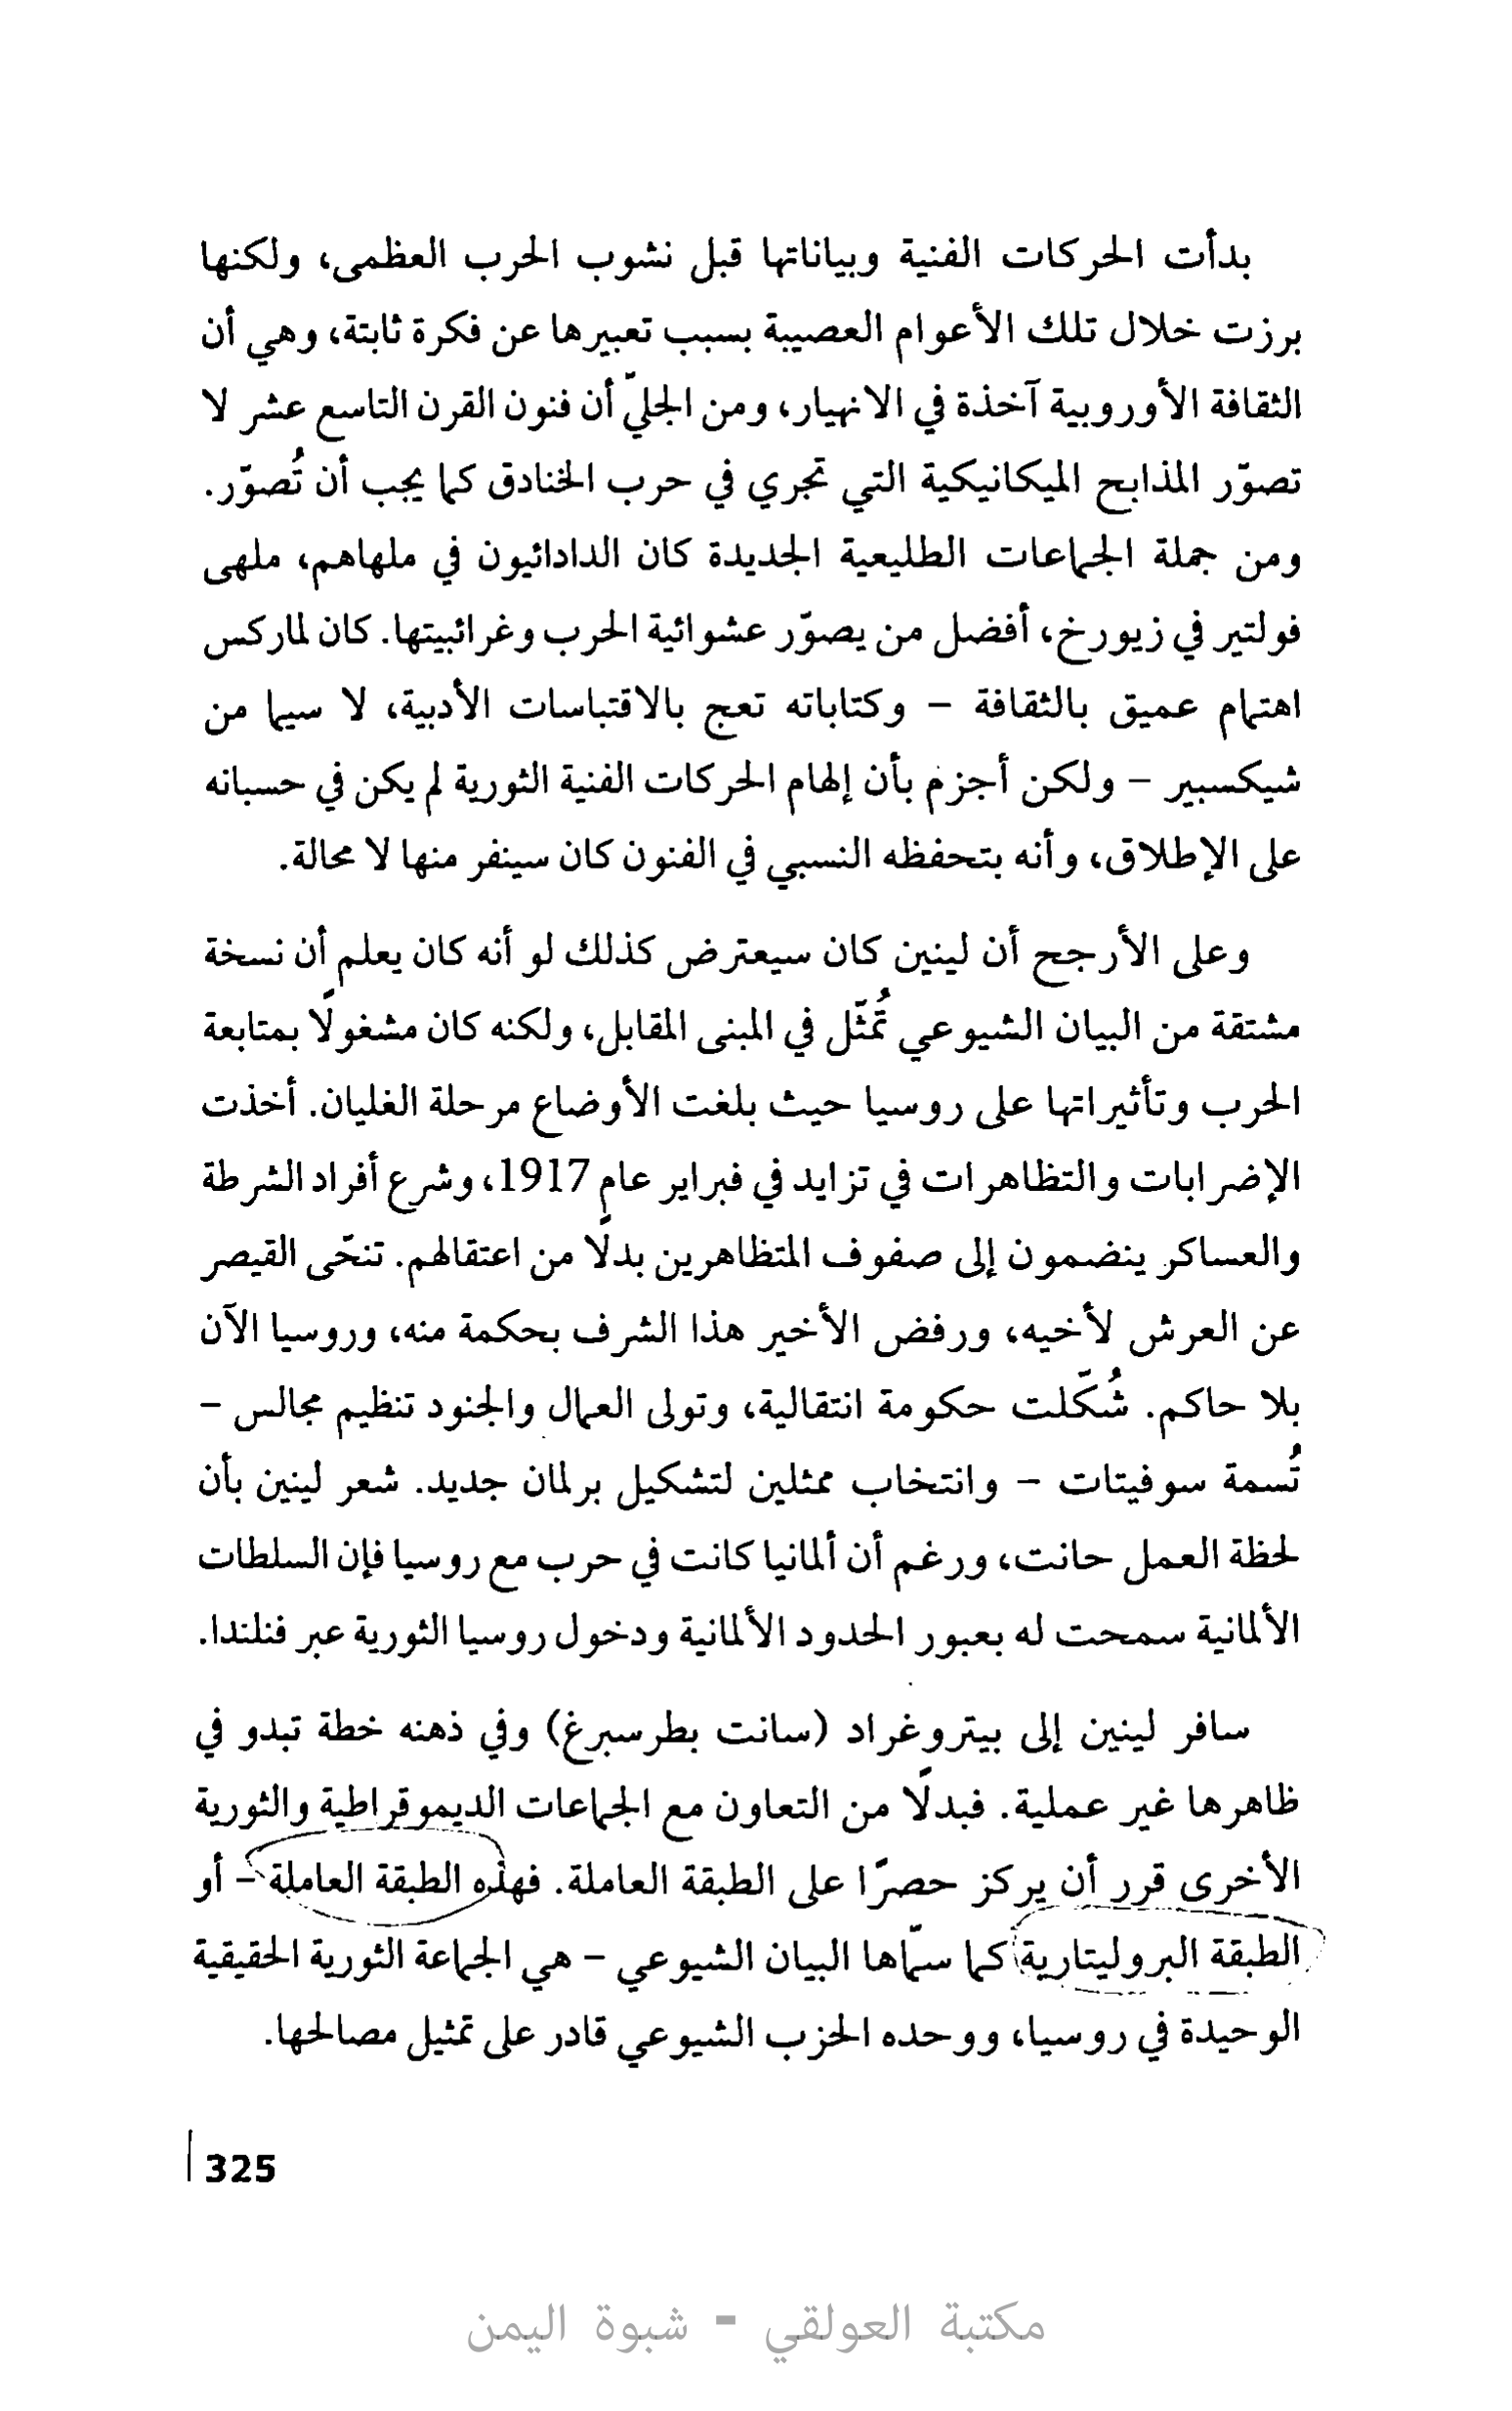 بدأت الحركات الفنية وبياناتها قبل نشوب الحرب العظمى، ولكنها
برزت خلال تلك الأعوام العصيبة بسبب تعبيرها عن فكرة ثابتة، وهي أن
الثقافة الأوروبية آخذة في الانهيار، ومن الجليّ أن فنون القرن التاسع عشر لا
تصوّر المذابح الميكانيكية التي تجري في حرب الخنادق كما يجب أن تُصوّر.
ومن جملة الجماعات الطليعية الجديدة كان الدادائيون في ملهاهم، ملهى
فولتير في زيورخ، أفضل من يصوّر عشوائية الحرب وغرائبيتها. كان لماركس
اهتمام عميق بالثقافة – وكتاباته تعج بالاقتباسات الأدبية، لا سيما من
شيكسبير – ولكن أجزم بأن إلهام الحركات الفنية الثورية لم يكن في حسبانه
على الإطلاق، وأنه بتحفظه النسبي في الفنون كان سينفر منها لا محالة.
وعلى الأرجح أن لينين كان سيعترض كذلك لو أنه كان يعلم أن نسخة
مشتقة من البيان الشيوعي تُمثّل في المبنى المقابل، ولكنه كان مشغولًا بمتابعة
الحرب وتأثيراتها على روسيا حيث بلغت الأوضاع مرحلة الغليان. أخذت
الإضرابات والتظاهرات في تزايد في فبراير عام 1917، وشرع أفراد الشرطة
والعساكر ينضمون إلى صفوف المتظاهرين بدلًا من اعتقالهم. تنحّى القيصر
عن العرش لأخيه، ورفض الأخير هذا الشرف بحكمة منه، وروسيا الآن
بلا حاكم. شُكّلت حكومة انتقالية، وتولى العمال والجنود تنظيم مجالس –
تُسمة سوفيتات – وانتخاب ممثلين لتشكيل برلمان جديد. شعر لينين بأن
لحظة العمل حانت، ورغم أن ألمانيا كانت في حرب مع روسيا فإن السلطات
الألمانية سمحت له بعبور الحدود الألمانية ودخول روسيا الثورية عبر فنلندا.
سافر لينين إلى بيتروغراد (سانت بطرسبرغ) وفي ذهنه خطة تبدو في
ظاهرها غير عملية. فبدلًا من التعاون مع الجماعات الديموقراطية والثورية
الأخرى قرر أن يركز حصرًا على الطبقة العاملة. فهذه الطبقة العاملة – أو
الطبقة البروليتارية كما سمّاها البيان الشيوعي – هي الجماعة الثورية الحقيقية
الوحيدة في روسيا، ووحده الحزب الشيوعي قادر على تمثيل مصالحها.
325
مكتبة العولقي - شبوة اليمن